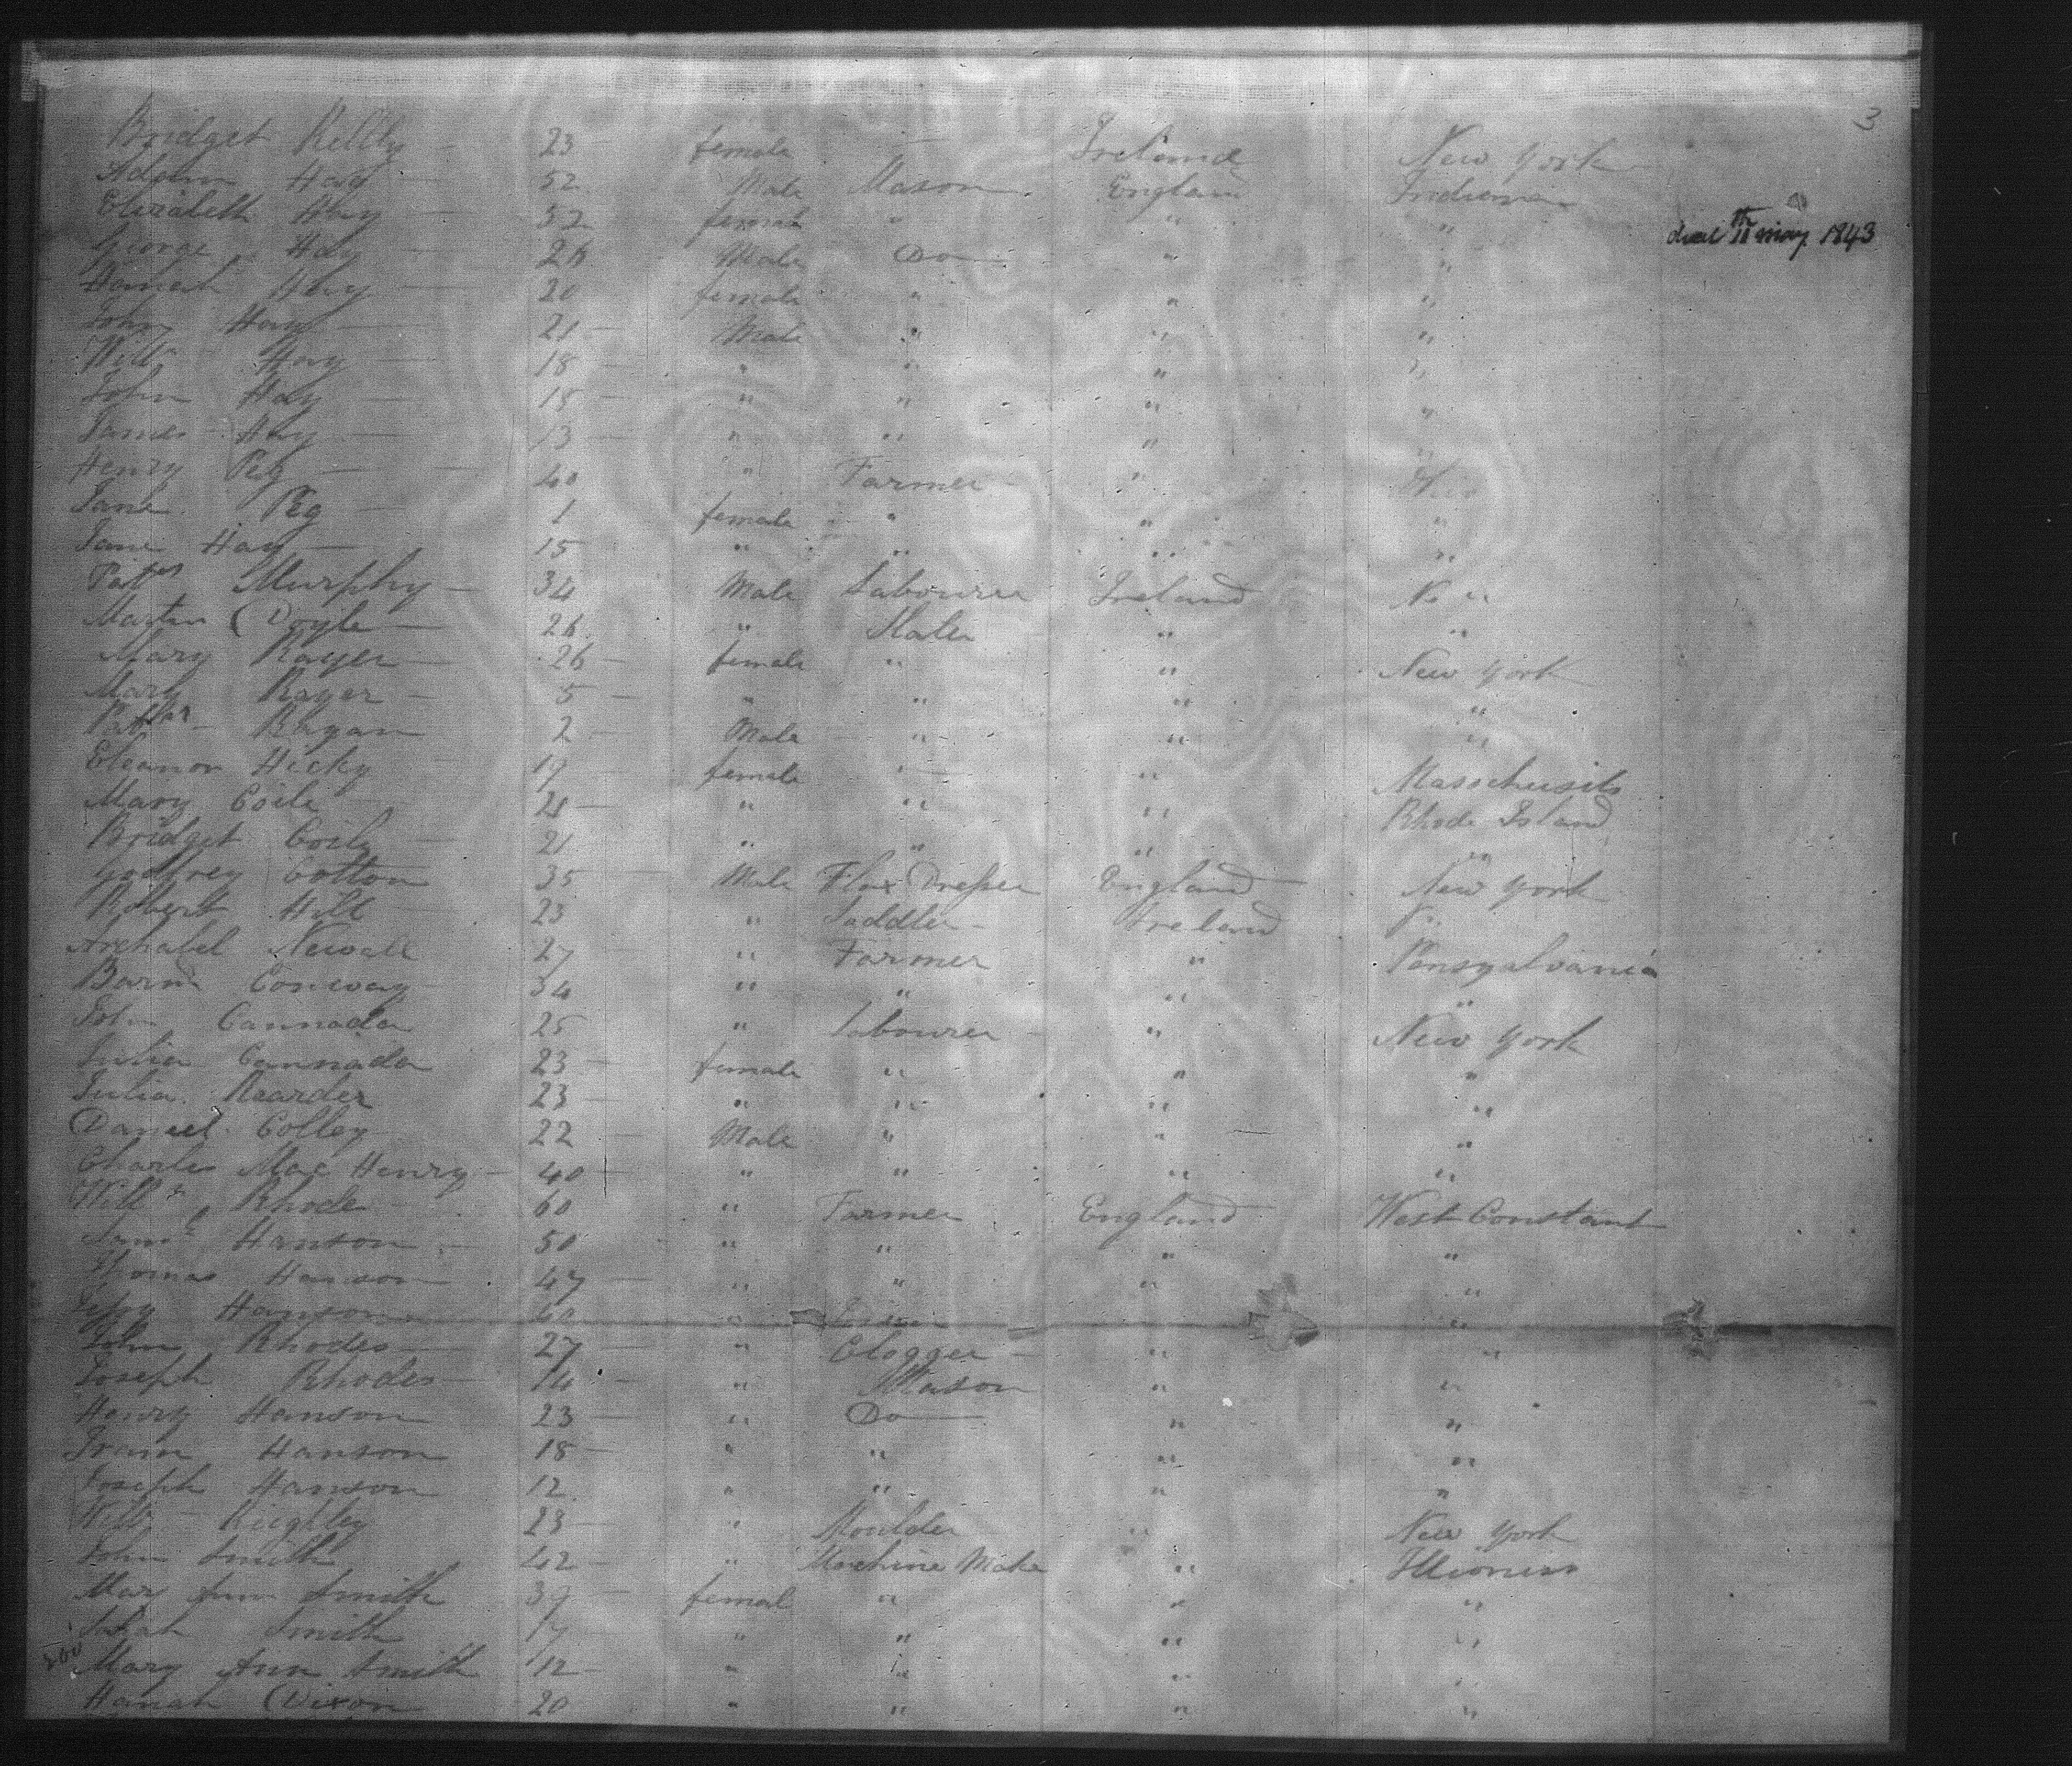 3
Bridget Reilly — 23 female — Ireland New York
Adam Hay — 52 Male Mason England Indiana
Elizabeth Hay — 52 female " " " died 11th may 1843
George Hay — 26 Male Do — " "
Hannah Hay — 20 female " " "
John Hay — 21 — Male " " "
Willm Hay — 18 — " " " "
John Hay — 15 — " " " "
James Hay — 13 — " " " "
Henry Peg — 40 " Farmer "
Jane Peg — 1 female " " "
Jane Hay — 15 " " " "
Murphy — 34 Male Labourer Ireland
Martin Doyle — 26 " Slater " "
Mary Rayer — 26 — female " " New York
Mary Rayer — 5 — " " " "
Ragan 2 — Male " " "
Eleanor Hicky 19 female " " Masschusits
Mary Coile 21 — " " " Rhode Island
Bridget Coile — 21 " " " "
Godfrey Cotton 35 — Male Flax Dresser England — New York
Robert Hill 23 " Saddler — Ireland "
Archabel Newall 27 " Farmer " Pensyalvania
Barnd Conway 34 " " " "
John Cannada 25 " Labourer " New York
Julia Cannada 23 — female " " "
Julia Raarder 23 — " " " "
Daniel Colley 22 — Male " " "
Charles Mac Henry — 40 — " " " "
Willm Rhode 60 " Farmer England West Constant
Saml Hanson — 50 " " " "
Thomas Hanson 47 — " " " "
Hanson 60 " "
John Rhodes — 27 — " Clogger — " "
Joseph Rhodes — 14 — " Mason " "
Henry Hanson 23 — " Do — " "
Hanson 18 — " " " "
Joseph Hanson 12 " " " "
Willm Keighley 23 — " Moulder " New York
John Smith 42 — " Machine Maker " Illioniss
Mary Ann Smith 39 — female " " "
Sarah Smith 17 " " " "
Mary Ann Smith 12 — " " " "
Hanah Dixon 20 " " " "